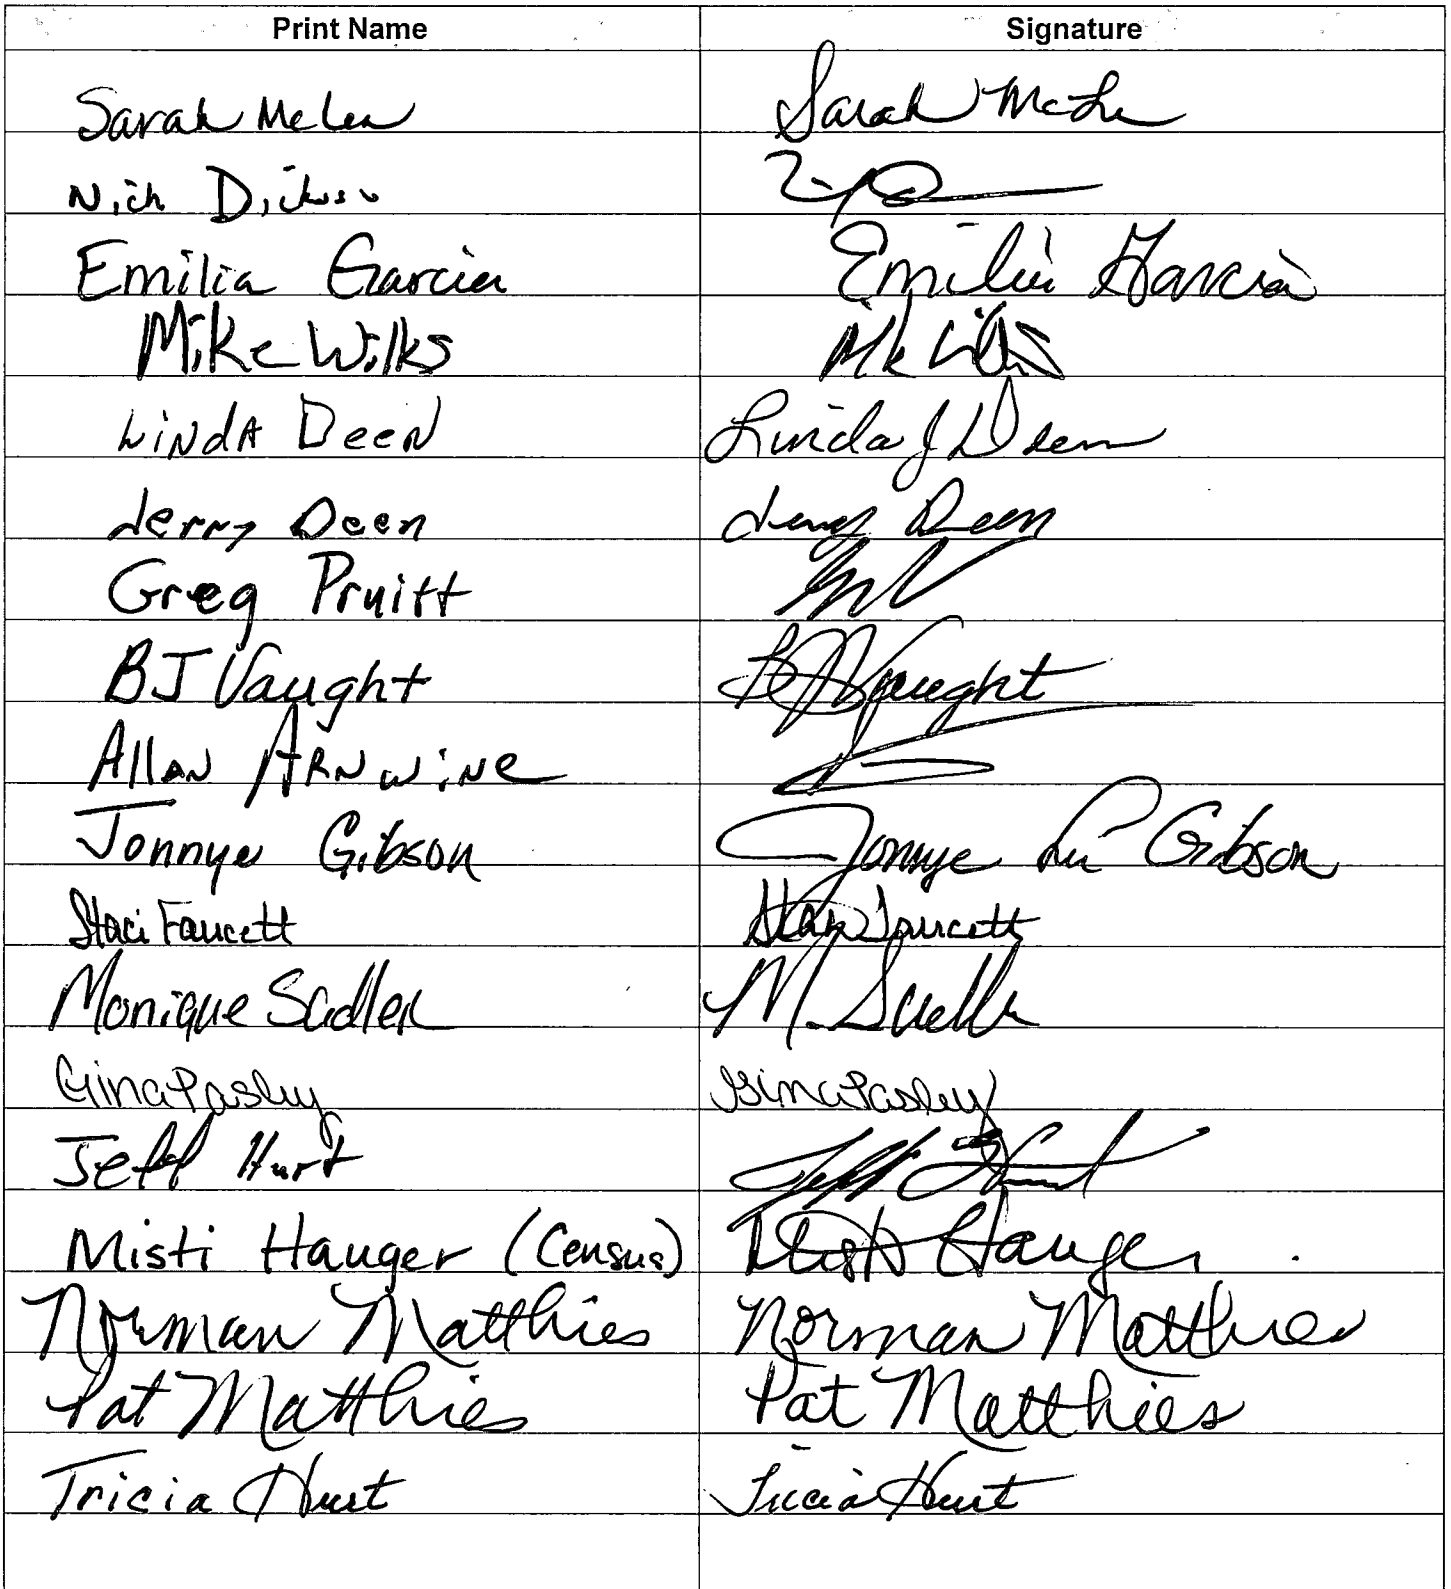 Print Name Signature
Sarah McLea Sarah
Nick
Emilia Garcia Emilia Garcia
Mike Wilks
Linda Deen Linda J Deen
Jerry Deen Jerry Deen
Greg Pruitt
BJ Vaught BJ Vaught
Allan Arnwine
Jonnye Gibson Jonnye Gibson
Staci Faucett Staci Faucett
Monique Sadler M. Sadler
Gina Pasley Gina Pasley
Jeff Hurt Jeff Hurt
Misti Hauger (Census) Misti Hauger
Norman Matthies Norman Matthies
Pat Matthies Pat Matthies
Tricia Hurt Tricia Hurt